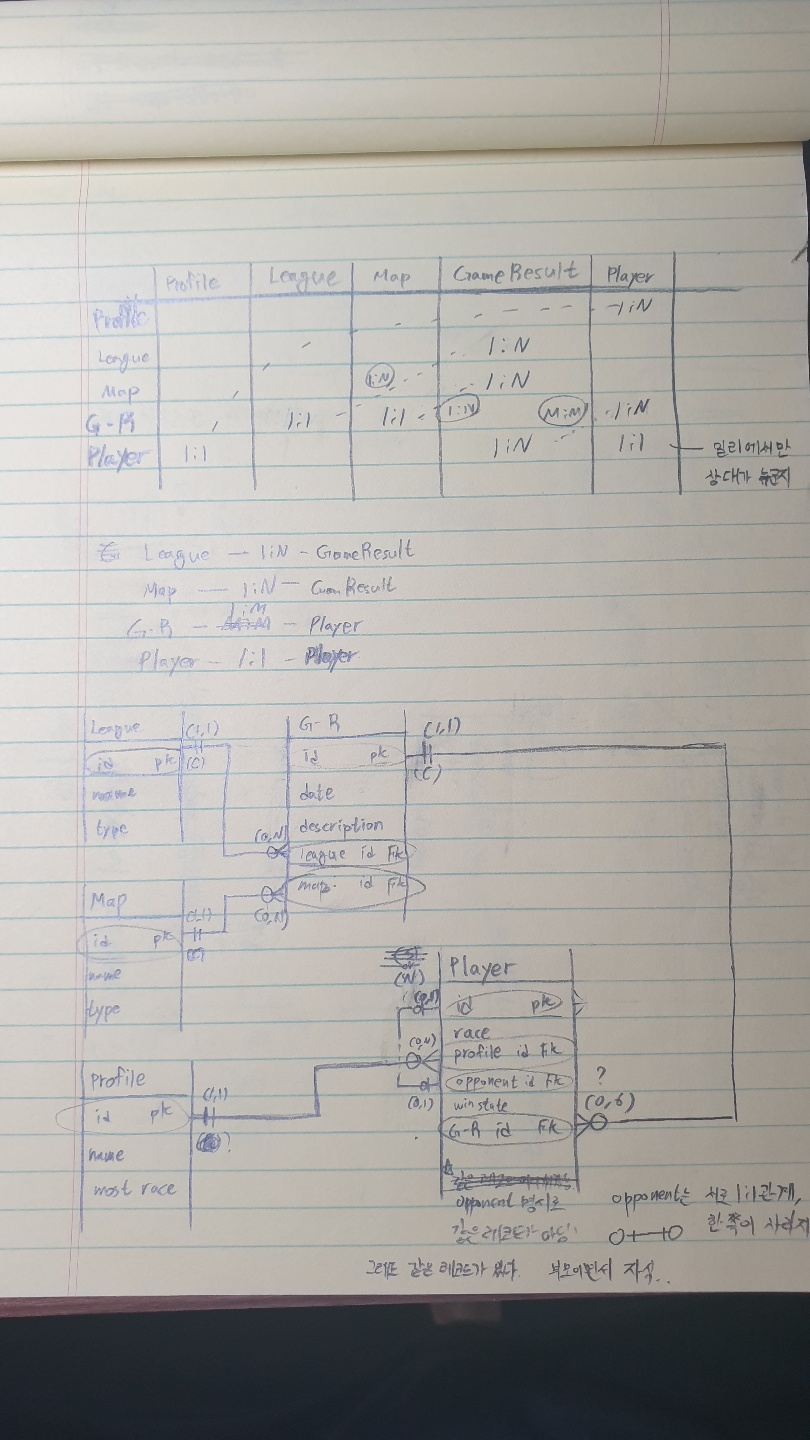 Profile League Map GameResult Player
Profile 1:N
League 1:N
Map 1:N 1:N
G-R 1:1 1:1 1:N M:M 1:N
Player 1:1 1:N 1:1 밀리에서만
상대가 누군지
League — 1:N — GameResult
Map — 1:N — GameResult
1:M
G-R — — Player
Player — 1:1 — Player
League (1,1) G-R (1,1)
id pk (C) id pk (C)
name date
type description
(0,N) league id FK
Map map id FK
(1,1) (0,N)
id pk
name Player
(N)
type id pk
race
(0,N) profile id FK
Profile opponent id FK ?
id pk (1,1) (0,1) winstate (0,6)
? G-R id FK
name
most race
opponent 명시로 opponent는 서로 1:1관계,
같은 레코드가 한쪽이 사라지
그래도 같은 레코드가 없다. 부모이면서 자식..